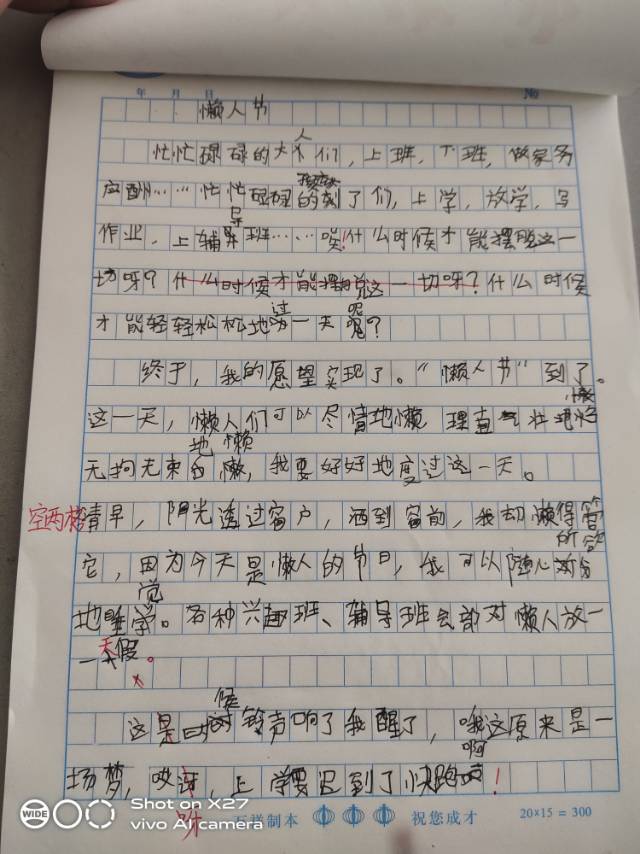 年 月 日
懒人节
忙忙碌碌的大人们，上班，下班，做家务
应酬……忙忙碌碌的孩子们，上学，放学，写
作业，上辅导班……唉！什么时候才能摆脱这一
切呀？什么时候才能摆脱这一切呀？什么时候
才能轻轻松松地过一天呢？
终于，我的愿望实现了。“懒人节”到了。
这一天，懒人们可以尽情地懒 理直气壮地懒
无拘无束地懒，我要好好地度过这一天。
空两格
清早，阳光透过窗户，洒到窗前，我却懒得管
它，因为今天是懒人的节日，我可以随心所欲
地睡觉。各种兴趣班、辅导班会都对懒人放一
一天假。
这是时候铃声响了我醒了，哦这原来是一
场梦，哎呀，上学要迟到了快跑啊！
WIDE
Shot on X27
vivo AI camera
万祥制本 祝您成才 20×15=300